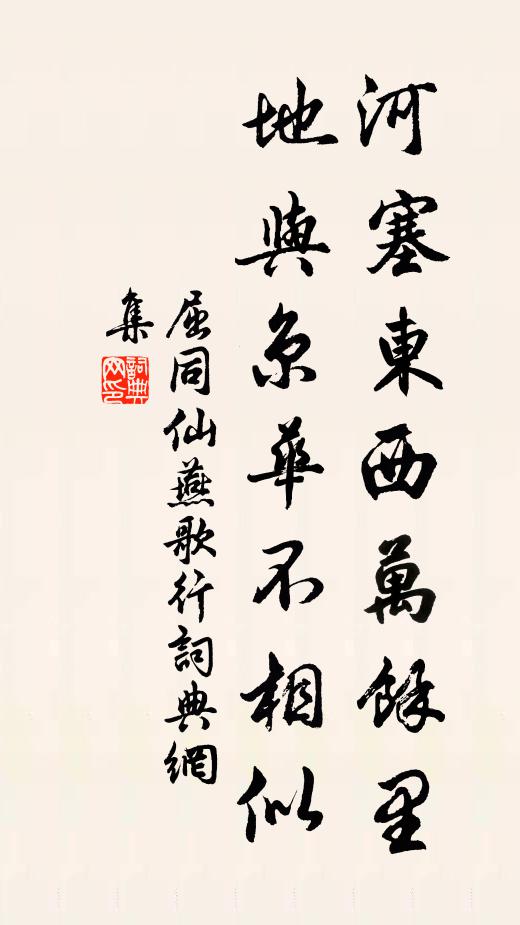 河塞東西萬餘里
地與京華不相似
屈同仙燕歌行詞典網
集
詞典
网印